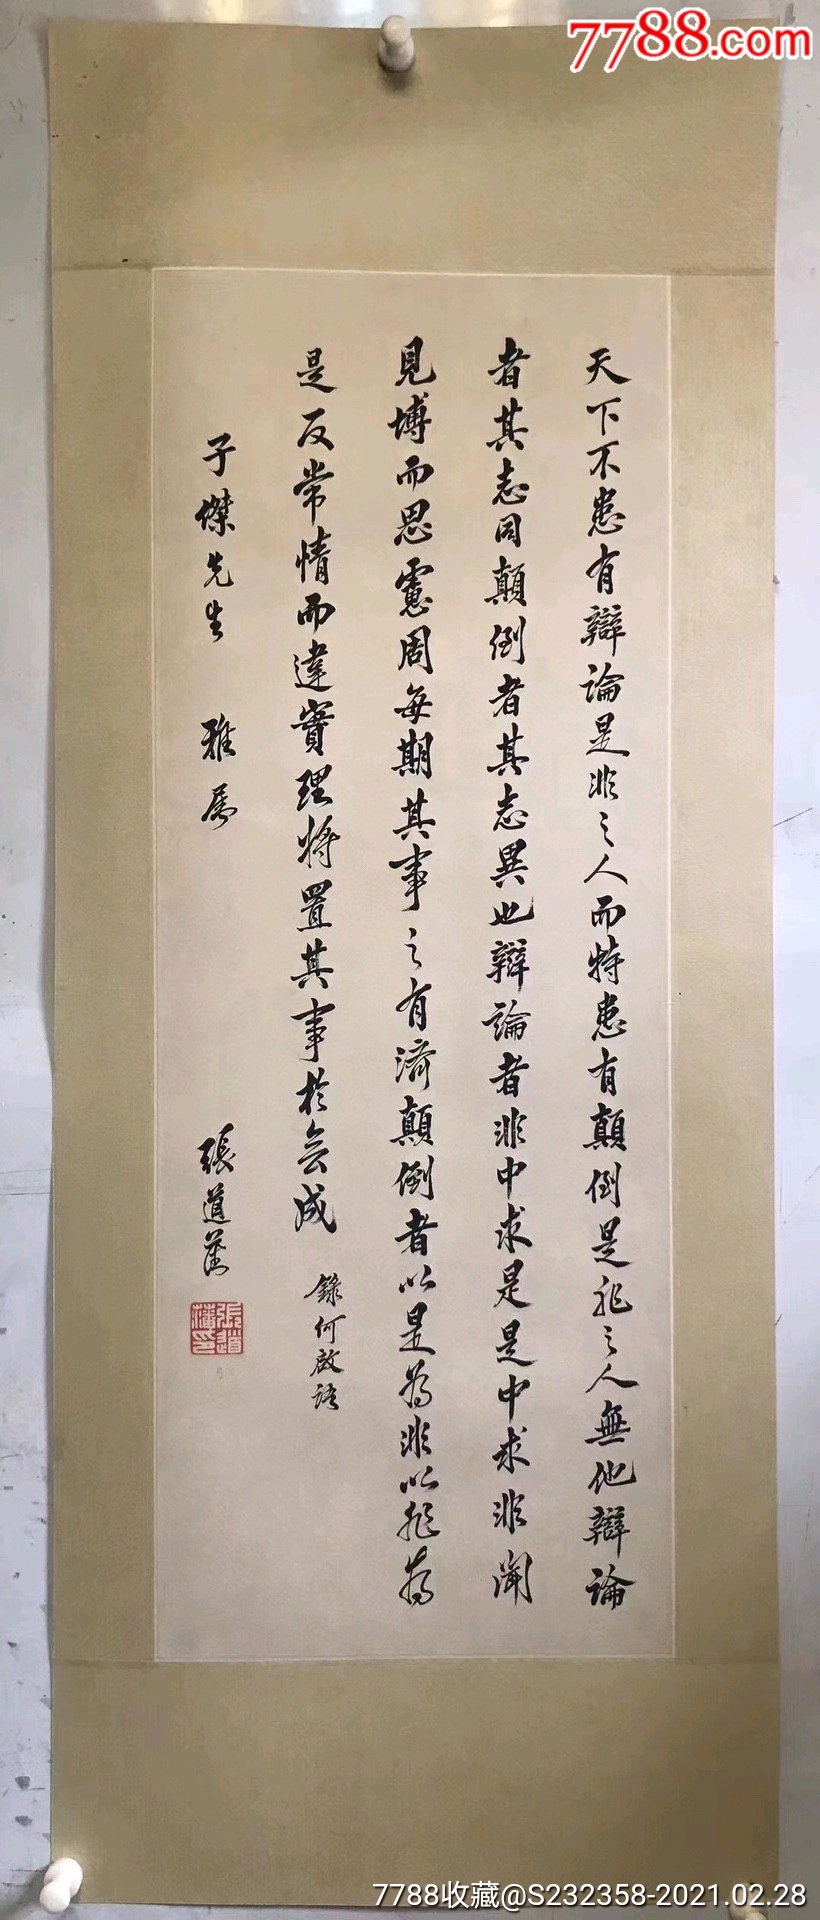 7788.com
天下不患有辯論是非之人而特患有顛倒是非之人無他辯論
者其志同顛倒者其志異也辯論者非中求是是中求非聞
見博而思慮周每期其事之有濟顛倒者以是為非以非為
是反常情而違實理將置其事於無成
錄何啟語
子傑先生 雅屬
張道藩
張道藩印
7788收藏@S232358-2021.02.28